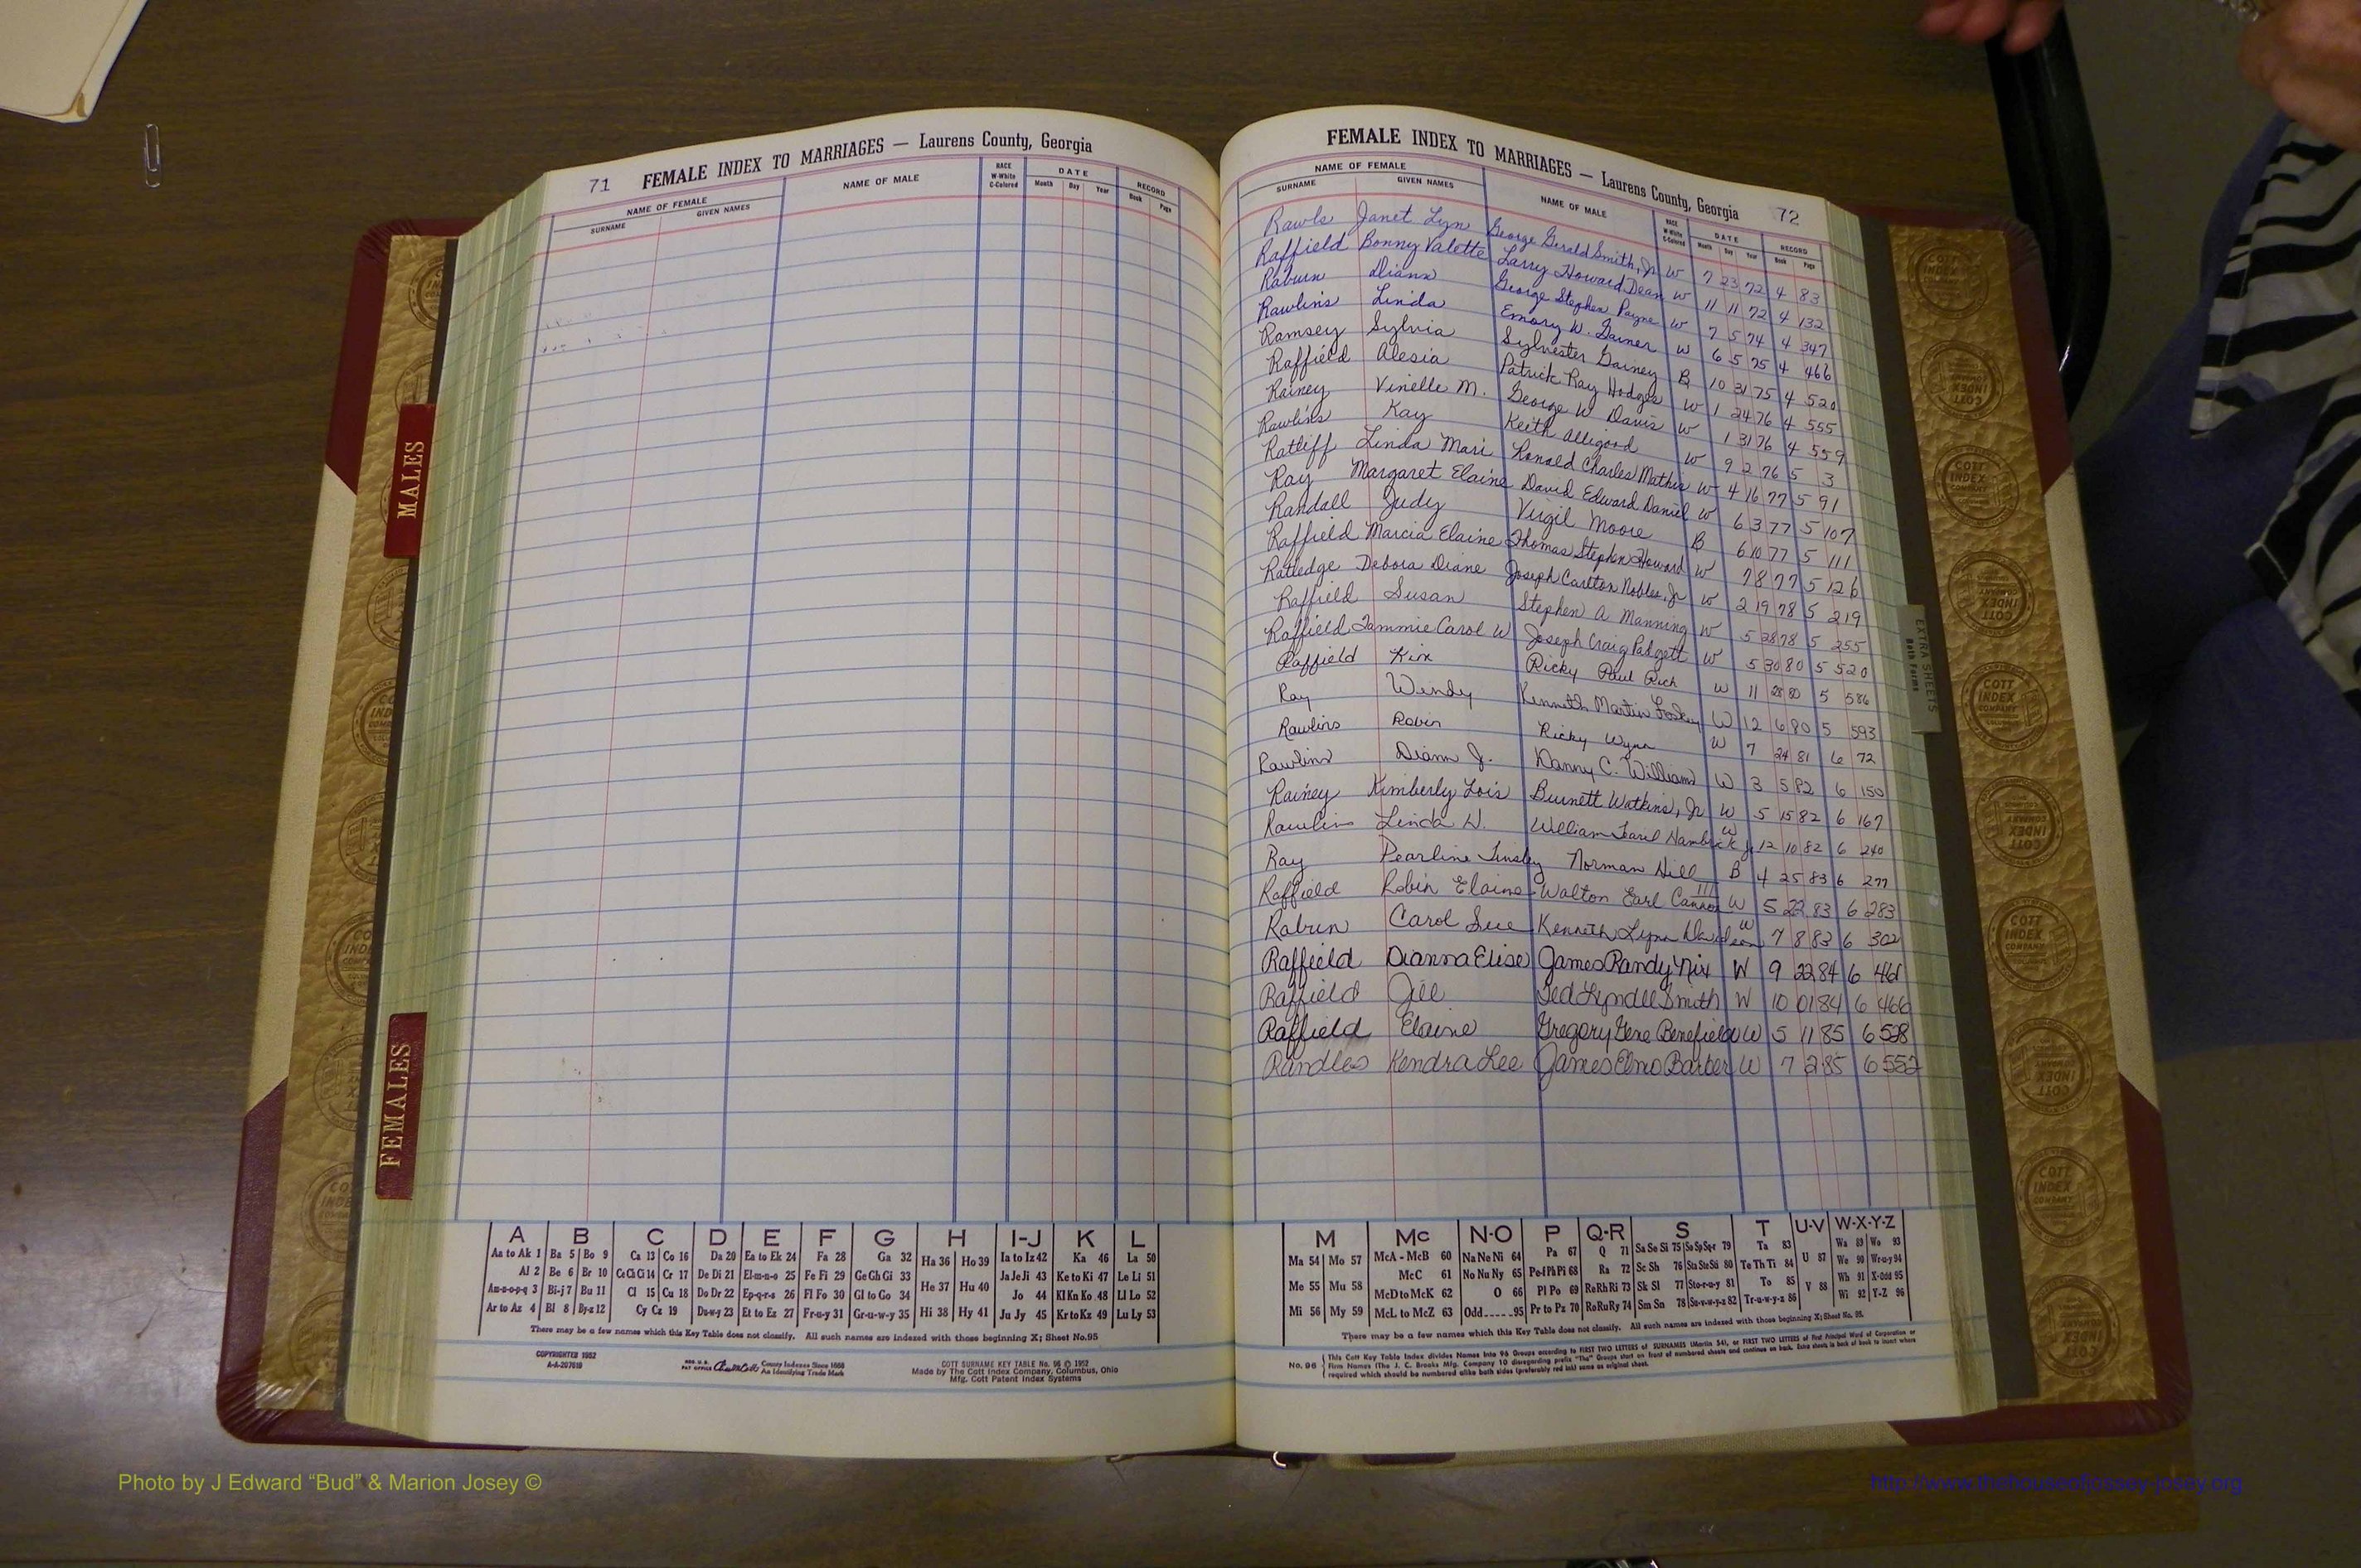 71 FEMALE INDEX TO MARRIAGES — Laurens County, Georgia
NAME OF FEMALE
SURNAME GIVEN NAMES
NAME OF MALE
RACE
W-White
C-Colored
DATE
Month Day Year
RECORD
Book Page
FEMALE INDEX TO MARRIAGES — Laurens County, Georgia 72
NAME OF FEMALE
SURNAME GIVEN NAMES
NAME OF MALE
RACE
W-White
C-Colored
DATE
Month Day Year
RECORD
Book Page
Rawls Janet Lyn George Gerald Smith, Jr W 7 23 72 4 83
Raffield Bonny Valette Larry Howard Dean W 11 11 72 4 132
Rabun Diann George Stephen Payne W 7 5 74 4 347
Rawlins Linda Emory W. Gainer W 6 5 75 4 466
Ramsey Sylvia Sylvester Gainey B 10 31 75 4 520
Raffield Alesia Patrick Ray Hodges W 1 24 76 4 555
Rainey Vinelle M. George W Davis W 1 31 76 4 559
Rawlins Kay Keith Alligood W 9 2 76 5 3
Ratliff Linda Mari Ronald Charles Mathis W 4 16 77 5 91
Ray Margaret Elaine David Edward Daniel W 6 3 77 5 107
Randall Judy Virgil Moore B 6 10 77 5 111
Raffield Marcia Elaine Thomas Stephen Howard W 7 8 77 5 126
Ratledge Debora Diane Joseph Carlton Nobles, Jr W 2 19 78 5 219
Raffield Susan Stephen A Manning W 5 28 78 5 255
Raffield Tammie Carol W Joseph Craig Padgett W 5 30 80 5 520
Raffield Kim Ricky Paul Rich W 11 28 80 5 586
Ray Wendy Kenneth Martin Foskey W 12 6 80 5 593
Rawlins Robin Ricky Wynn W 7 24 81 6 72
Rawlins Diann J. Danny C. Williams W 3 5 82 6 150
Rainey Kimberly Lois Burnett Watkins, Jr W 5 15 82 6 167
Rawlins Linda W. William Hambrick Jr W 12 10 82 6 240
Ray Pearline Tinsley Norman Hill B 4 25 83 6 277
Raffield Robin Elaine Walton Earl Cannon III W 5 22 83 6 283
Rabun Carol Sue Kenneth Lynn Davidson W 7 8 83 6 302
Raffield Dianna Elise James Randy Nix W 9 22 84 6 461
Raffield Jill Ted Lyndell Smith W 10 01 84 6 466
Raffield Elaine Gregory Gene Benefield W 5 11 85 6 528
Randles Kendra Lee James Elmo Barber W 7 2 85 6 552
MALES
FEMALES
EXTRA SHEETS
Both Forms
COTT INDEX COMPANY
A B C D E F G H I-J K L
Aa to Ak 1 Ba 5 Bo 9 Ca 13 Co 16 Da 20 Ea to Ek 24 Fa 28 Ga 32 Ha 36 Ho 39 Ia to Iz 42 Ka 46 La 50
Al 2 Be 6 Br 10 Ce Ch Ci 14 Cr 17 De Di 21 El-m-n-o 25 Fe Fi 29 Ge Gh Gi 33 He 37 Hu 40 Ja Je Ji 43 Ke to Ki 47 Le Li 51
Am-n-o-p-q 3 Bi-j 7 Bu 11 Cl 15 Cu 18 Do Dr 22 Ep-q-r-s 26 Fl Fo 30 Gl to Go 34 Jo 44 Kl Kn Ko 48 Ll Lo 52
Ar to Az 4 Bl 8 By-z 12 Cy Cz 19 Du-w-y 23 Et to Ez 27 Fr-u-y 31 Gr-u-w-y 35 Hi 38 Hy 41 Ju Jy 45 Kr to Kz 49 Lu Ly 53
There may be a few names which this Key Table does not classify. All such names are indexed with those beginning X; Sheet No.95
COPYRIGHTED 1952
A-A-207619
REG. U.S. PAT OFFICE
County Indexes Since 1888
An Identifying Trade Mark
COTT SURNAME KEY TABLE No. 96 © 1952
Made by The Cott Index Company, Columbus, Ohio
Mfg. Cott Patent Index Systems
M Mc N-O P Q-R S T U-V W-X-Y-Z
Ma 54 Mo 57 McA - McB 60 Na Ne Ni 64 Pa 67 Q 71 Sa Se Si 75 So Sp Sq-r 79 Ta 83 U 87 Wa 89 Wo 93
Me 55 Mu 58 McC 61 No Nu Ny 65 Pe-f Ph Pi 68 Ra 72 Sc Sh 76 Sta Ste Sti 80 Te Th Ti 84 We 90 Wr-u-y 94
McD to McK 62 O 66 Pl Po 69 Re Rh Ri 73 Sk Sl 77 Sto-r-u-y 81 To 85 V 88 Wh 91 X-Odd 95
Mi 56 My 59 McL to McZ 63 Odd 95 Pr to Pz 70 Ro Ru Ry 74 Sm Sn 78 Su-v-w-y-z 82 Tr-u-w-y-z 86 Wi 92 Y-Z 96
There may be a few names which this Key Table does not classify. All such names are indexed with those beginning X; Sheet No. 95.
No. 96 This Cott Key Table Index divides Names into 96 Groups according to FIRST TWO LETTERS of SURNAMES (Martin 54), or FIRST TWO LETTERS of First Principal Word of Corporation or
Firm Names (The J. C. Brooks Mfg. Company 10 disregarding prefix "The" Groups start on front of numbered sheets and continue on back. Extra sheets in back of book to insert where
required which should be numbered alike both sides (preferably red ink) same as original sheet.
Photo by J Edward “Bud” & Marion Josey ©
http://www.thehouseofjossey-josey.org